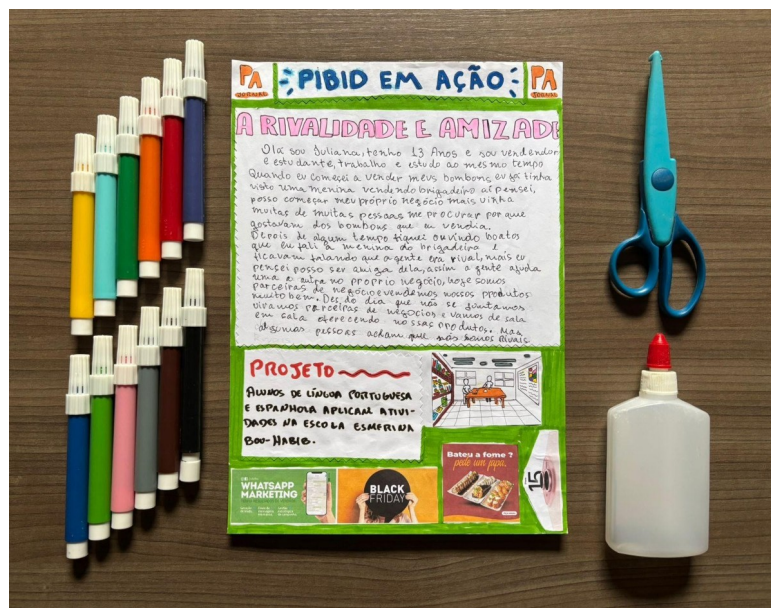 PA
JORNAL
PIBID EM AÇÃO
PA
JORNAL
A RIVALIDADE E AMIZADE
Ola sou Juliana, tenho 13 Anos e sou vendendor
e estudante, trabalho e estudo ao mesmo tempo
Quando eu começei a vender meus bombons eu já tinha
visto uma menina vendendo brigadeiro aí pensei,
posso começar meu próprio negócio mais vinha
muitas de muitas pessoas me procurar por que
gostavam dos bombons que eu vendia.
Depois de algum tempo fiquei ouvindo boatos
que eu fali a menina do brigadeiro e
ficavam falando que a gente era rival, mais eu
pensei posso ser amiga dela, assim a gente ajuda
uma a outra no proprio negócio, hoje somos
parceiras de negócio e vendemos nossos produtos
muito bem. Des do dia que nós se juntamos
viramos parceiras de negócios e vamos de sala
em sala oferecendo nossas produtos. Mas
algumas pessoas acham que nós somos Rivais
PROJETO
ALUNOS DE LÍNGUA PORTUGUESA
E ESPANHOLA APLICAM ATIVI-
DADES NA ESCOLA ESMERINA
BOU-HABIB.
WHATSAPP
MARKETING
BLACK
FRIDAY
Bateu a fome ?
pede um japa.
15